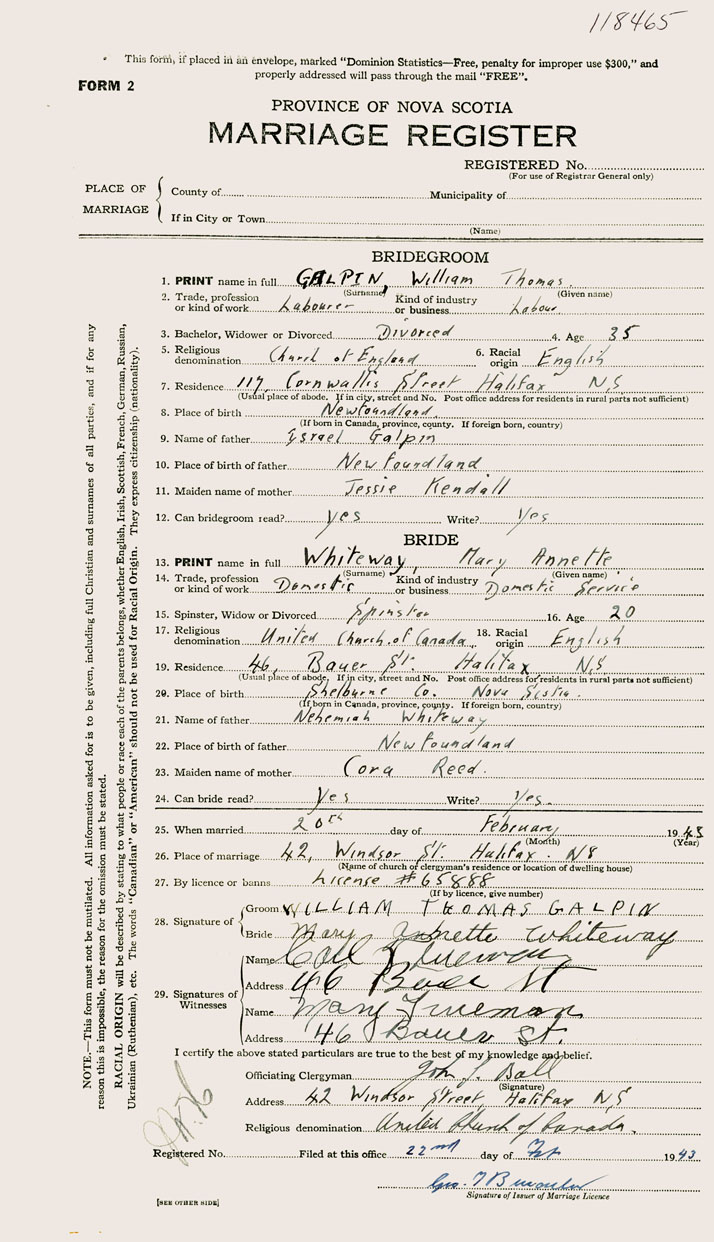 118465
This form, if placed in an envelope, marked "Dominion Statistics—Free, penalty for improper use $300," and
properly addressed will pass through the mail "FREE".
FORM 2
PROVINCE OF NOVA SCOTIA
MARRIAGE REGISTER
REGISTERED No.
(For use of Registrar General only)
PLACE OF MARRIAGE
County of Municipality of
If in City or Town
(Name)
BRIDEGROOM
1. PRINT name in full GALPIN, William Thomas.
(Surname) (Given name)
2. Trade, profession or kind of work Labourer Kind of industry or business Labour
3. Bachelor, Widower or Divorced Divorced 4. Age 35
5. Religious denomination Church of England 6. Racial origin English
7. Residence 117, Cornwallis Street Halifax N.S
(Usual place of abode. If in city, street and No. Post office address for residents in rural parts not sufficient)
8. Place of birth Newfoundland.
(If born in Canada, province, county. If foreign born, country)
9. Name of father Israel Galpin
10. Place of birth of father Newfoundland
11. Maiden name of mother Jessie Kendall
12. Can bridegroom read? yes Write? Yes
BRIDE
13. PRINT name in full Whiteway, Mary Annette
(Surname) (Given name)
14. Trade, profession or kind of work Domestic Kind of industry or business Domestic Service
15. Spinster, Widow or Divorced Spinster 16. Age 20
17. Religious denomination United Church of Canada 18. Racial origin English
19. Residence 46, Bauer St. Halifax N.S
(Usual place of abode. If in city, street and No. Post office address for residents in rural parts not sufficient)
20. Place of birth Shelburne Co. Nova Scotia.
(If born in Canada, province, county. If foreign born, country)
21. Name of father Nehemiah Whiteway
22. Place of birth of father Newfoundland
23. Maiden name of mother Cora Reed.
24. Can bride read? Yes Write? Yes.
25. When married 20th day of February 1943
(Month) (Year)
26. Place of marriage 42, Windsor St. Halifax. NS
(Name of church of clergyman's residence or location of dwelling house)
27. By licence or banns License #65888
(If by licence, give number)
28. Signature of
Groom WILLIAM THOMAS GALPIN
Bride Mary Annette Whiteway
29. Signatures of Witnesses
Name
Address 46 Bauer St
Name Mary Trueman
Address 46 Bauer St.
I certify the above stated particulars are true to the best of my knowledge and belief.
Officiating Clergyman John Ball
(Signature)
Address 42 Windsor Street, Halifax N.S
Religious denomination United Church of Canada.
Registered No. Filed at this office 22nd day of Feb 1943
Signature of Issuer of Marriage Licence
[SEE OTHER SIDE]
NOTE.—This form must not be mutilated. All information asked for is to be given, including full Christian and surnames of all parties, and if for any
reason this is impossible, the reason for the omission must be stated.
RACIAL ORIGIN will be described by stating to what people or race each of the parents belongs, whether English, Irish, Scottish, French, German, Russian,
Ukrainian (Ruthenian), etc. The words "Canadian" or "American" should not be used for Racial Origin. They express citizenship (nationality).